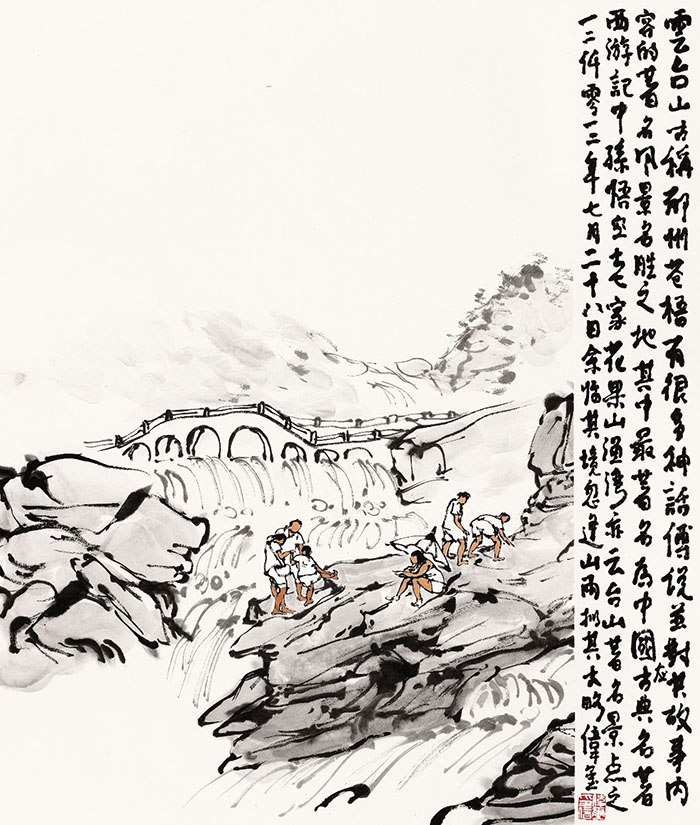 雲台山古稱郁州蒼梧有很多神話傳说並對其故事内
容的著名风景名胜之地其中最著名為中國古典名著
西游記中孫悟空老家花果山渔湾亦云台山著名景点之
一二仟零一二年七月二十八日余临其境忽逢山雨拟其大略偉
应